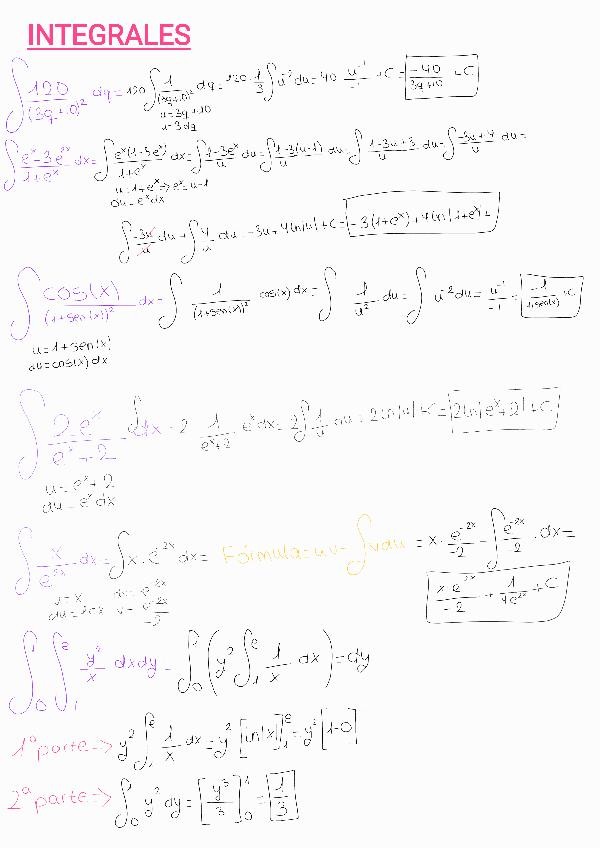 INTEGRALES
∫ 120/(3q+10)² dq = 120 ∫ 1/(3q+10)² dq = 120 · 1/3 ∫ u⁻² du = 40 u⁻¹/-1 + C = -40/3q+10 + C
u = 3q+10
u = 3dq
∫ eˣ-3e²ˣ/1+eˣ dx = ∫ eˣ(1-3eˣ)/1+eˣ dx = ∫ 1-3eˣ/u = ∫ 1-3(u-1)/u du = ∫ 1-3u+3/u du = ∫ -3u+4/u du =
u = 1+eˣ → eˣ = u-1
du = eˣ dx
∫ -3u/u du + ∫ 4/u du = -3u + 4 ln|u| + C = -3(1+eˣ) + 4 ln|1+eˣ| +
∫ cos(x)/(1+sen(x))² dx = ∫ 1/(1+sen(x))² cos(x) dx = ∫ 1/u² du = ∫ u⁻² du = u⁻¹/-1 = -1/1+sen(x) + C
u = 1+sen(x)
du = cos(x) dx
∫ 2eˣ/eˣ+2 ∫ dx = 2 1/eˣ+2 eˣ dx = 2 ∫ 1/u du = 2 ln|u| + C = 2 ln|eˣ+2| + C
u = eˣ+2
du = eˣ dx
∫ x/e²ˣ dx = ∫ x · e⁻²ˣ dx = Fórmula = uv - ∫ v du = x · e⁻²ˣ/-2 - ∫ e⁻²ˣ/2 · dx =
u = x e⁻²ˣ
v = e⁻²ˣ/-2
1/4e²ˣ + C
∫₀¹ ∫₁ᵉ y²/x dxdy = ∫₀¹ (y² ∫₁ᵉ 1/x dx) = dy
1ª parte → y² ∫₁ᵉ 1/x dx = y² [ln|x]₁ᵉ = y² [1-0]
2ª parte → ∫₀¹ y² dy = [y³/3]₀¹ = 1/3